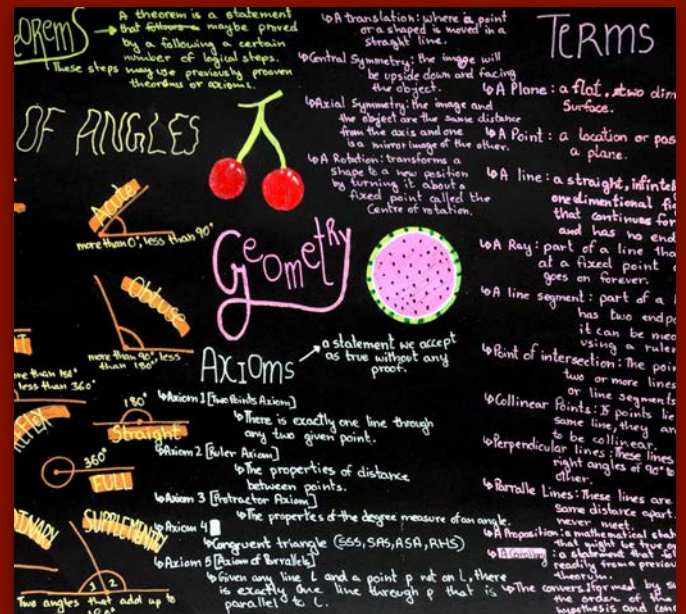 THEOREMS
A theorem is a statement
that follows a maybe proved
by a following a certain
number of logical steps.
These steps may use previously proven
theorems or axioms.
OF ANGLES
Acute
more than 0°, less than 90°
Obtuse
more than 90°, less
than 180°.
more than 180°
less than 360°
REFLEX
180°
Straight
360°
FULL
SUPPLEMENTRY
1 2
Two angles that add up to
180°
↳A translation: where a point
or a shaped is moved in a
straight line.
↳Central Symmetry: the image will
be upside down and facing
the object.
↳Axial Symmetry: the image and
the object are the same distance
from the axis and one
is a mirror image of the other.
↳A Rotation: transforms a
shape to a new position
by turning it about a
fixed point called the
Centre of rotation.
GEOMETRY
AXIOMS
a statement we accept
as true without any
proof.
↳Axiom 1 [Two Points Axiom]
↳There is exactly one line through
any two given point.
↳Axiom 2 [Ruler Axiom]
↳The properties of distance
between points.
↳Axiom 3 [Protractor Axiom]
↳The properties of the degree measure of an angle.
↳Axiom 4
↳Congruent triangle (SSS, SAS, ASA, RHS)
↳Axiom 5 [Axiom of Parrallels]
↳Given any line L and a point p not on L, there
is exactly one line through p that is
parallel to L.
TERMS
↳A Plane: a flat, two dim
Surface.
↳A Point: a location or pos
a plane.
↳A line: a straight, infintely
one dimentional fig
that continues for
and has no end
↳A Ray: part of a line tha
at a fixed point
goes on forever.
↳A line segment: part of a
has two endpo
it can be mea
using a ruler
↳Point of intersection: The poin
two or more lines
or line segments
↳Collinear Points: If points lie
same line, they are
to be collinear.
↳Perpendicular lines: These lines
right angles of 90° to
other.
↳Parralle Lines: These lines are
Same distance apart.
never meet.
↳A Proposition: a mathematical stat
that might be true or
↳A Corollary: a statement that
readily from a previous
theorum.
↳The convers: formed by s
the order of the
hypothesis and conc